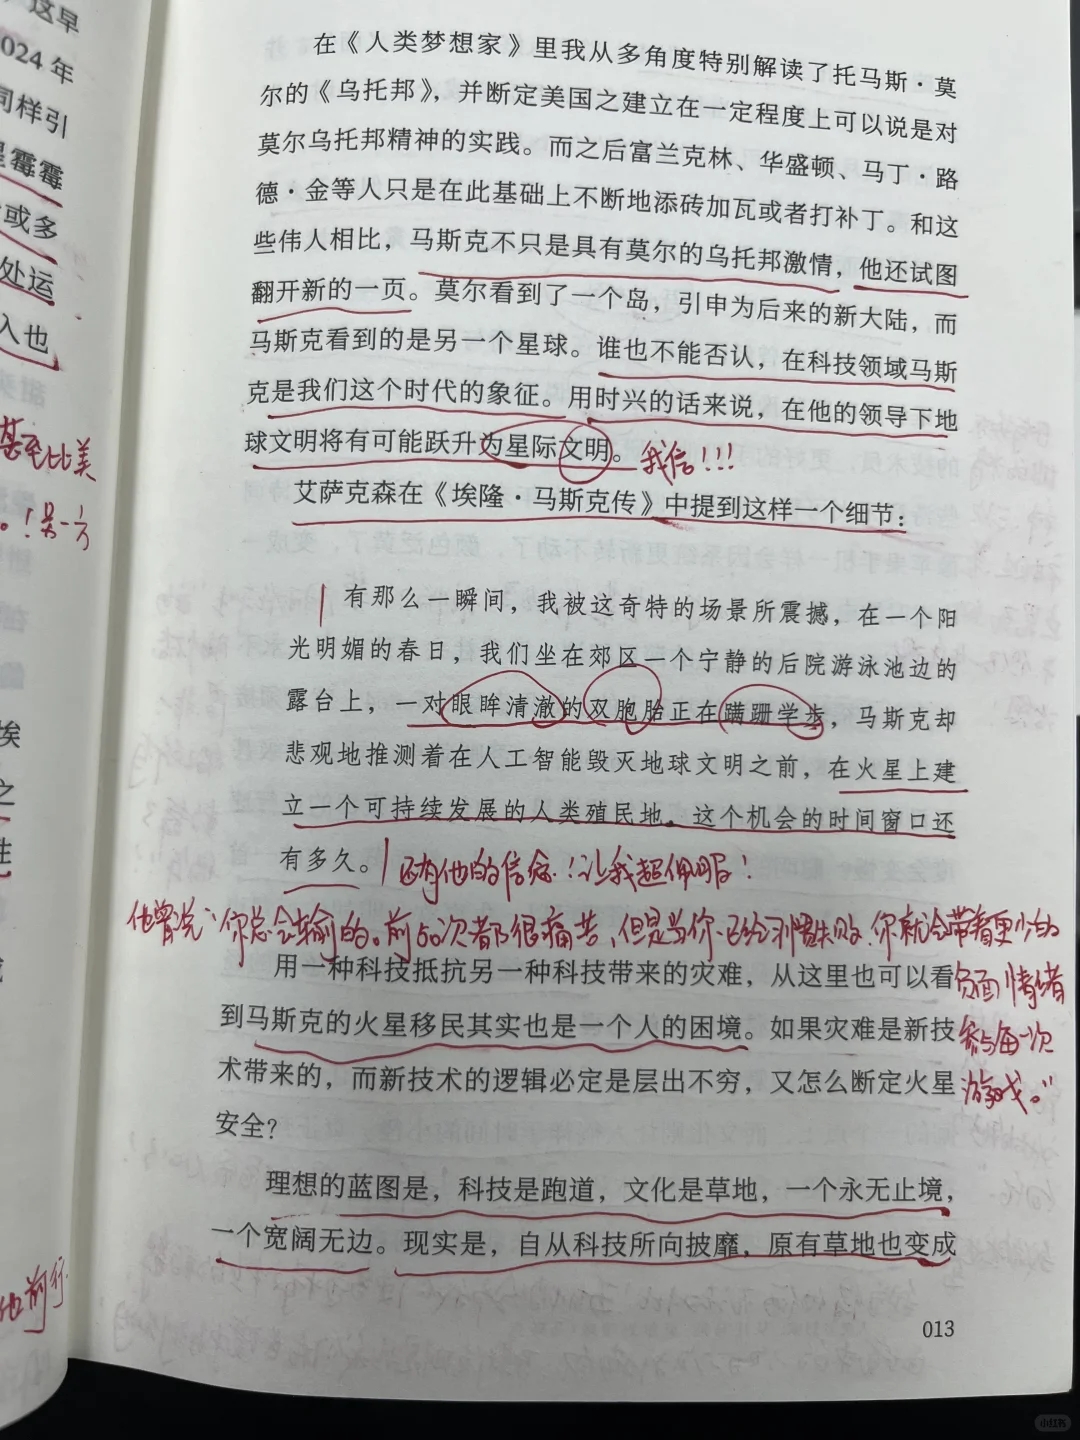 这早
024 年
同样引
星霉霉
或多
处运
入也
甚至比美
。！另一方
埃
之
性
他前行
在《人类梦想家》里我从多角度特别解读了托马斯·莫
尔的《乌托邦》，并断定美国之建立在一定程度上可以说是对
莫尔乌托邦精神的实践。而之后富兰克林、华盛顿、马丁·路
德·金等人只是在此基础上不断地添砖加瓦或者打补丁。和这
些伟人相比，马斯克不只是具有莫尔的乌托邦激情，他还试图
翻开新的一页。莫尔看到了一个岛，引申为后来的新大陆，而
马斯克看到的是另一个星球。谁也不能否认，在科技领域马斯
克是我们这个时代的象征。用时兴的话来说，在他的领导下地
球文明将有可能跃升为星际文明。我信！！！
艾萨克森在《埃隆·马斯克传》中提到这样一个细节：
有那么一瞬间，我被这奇特的场景所震撼，在一个阳
光明媚的春日，我们坐在郊区一个宁静的后院游泳池边的
露台上，一对眼眸清澈的双胞胎正在蹒跚学步，马斯克却
悲观地推测着在人工智能毁灭地球文明之前，在火星上建
立一个可持续发展的人类殖民地。这个机会的时间窗口还
有多久。还有他的信念！让我超佩服！
他曾说“你总会输的。前50次都很痛苦，但是当你已经习惯失败、你就会带着更少的
负面情绪
参与每一次
游戏。”
用一种科技抵抗另一种科技带来的灾难，从这里也可以看
到马斯克的火星移民其实也是一个人的困境。如果灾难是新技
术带来的，而新技术的逻辑必定是层出不穷，又怎么断定火星
安全？
理想的蓝图是，科技是跑道，文化是草地，一个永无止境，
一个宽阔无边。现实是，自从科技所向披靡，原有草地也变成
013
小红书